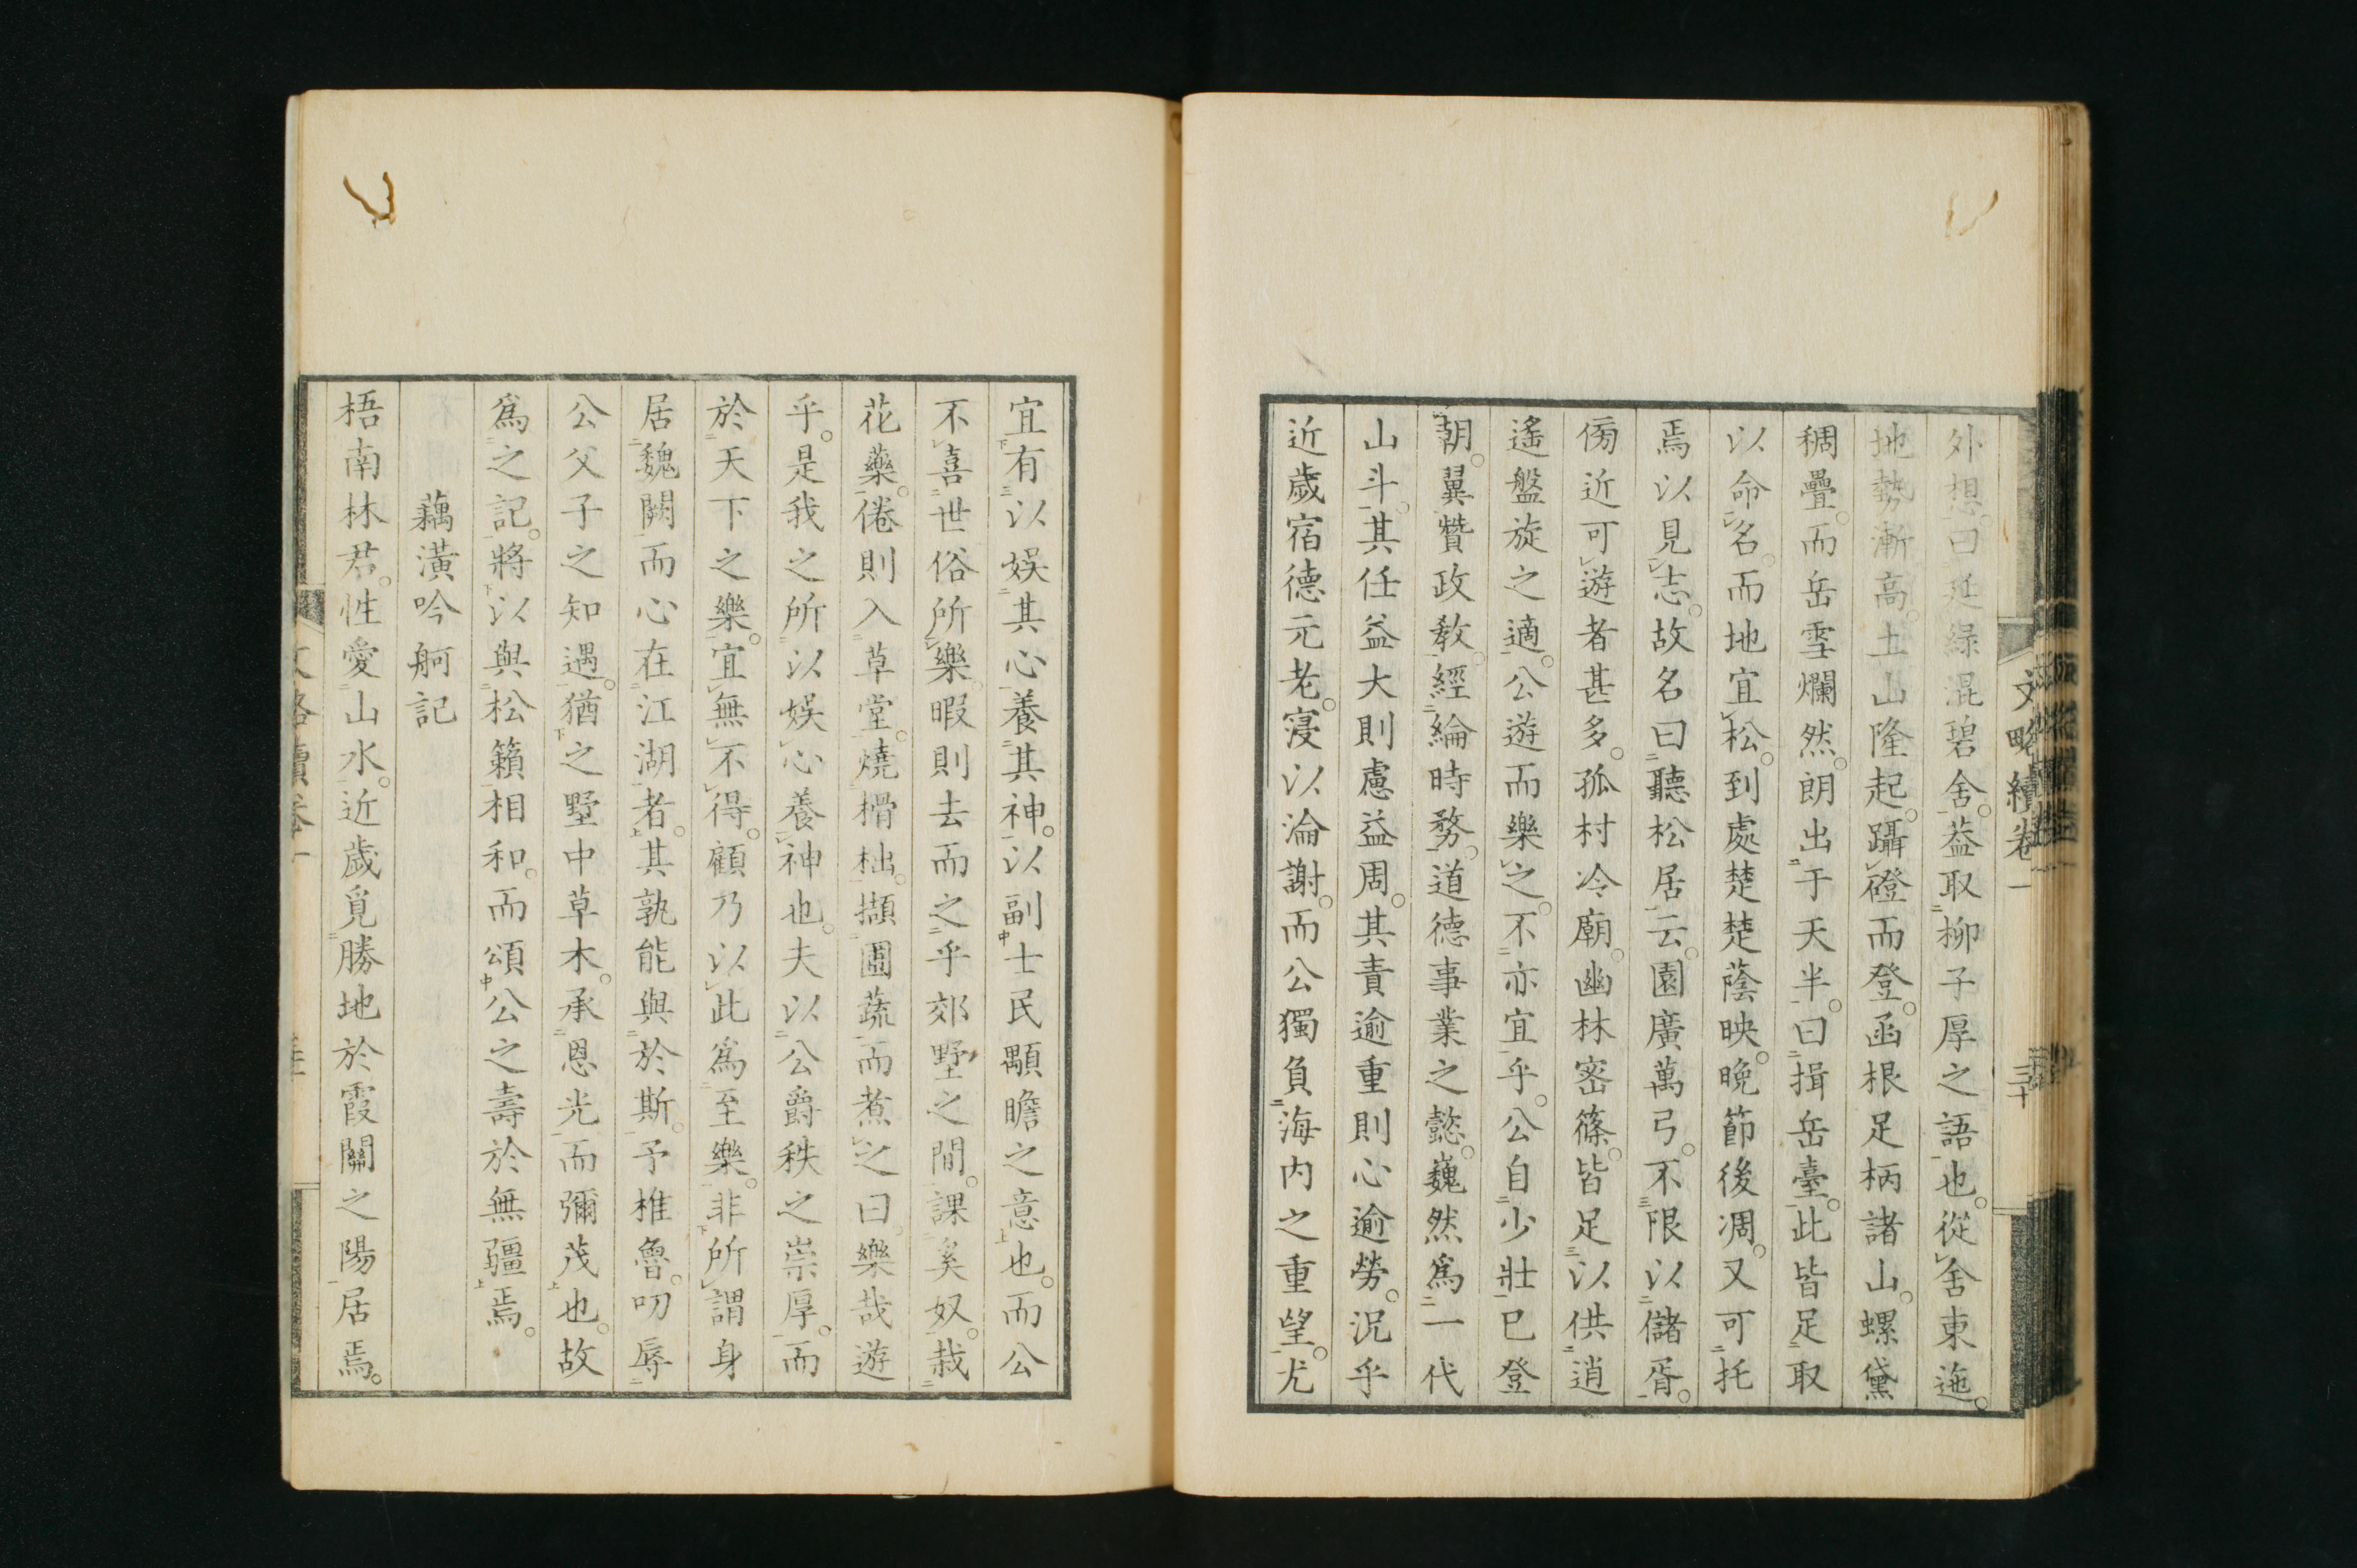 外想。曰延緑混碧舍。蓋取柳子厚之語也。從舍東迤。
地勢漸高。土山隆起。躡磴而登。函根足柄諸山。螺黛
稠疊。而岳雪爛然。朗出于天半。曰揖岳臺。此皆足取
以命名。而地宜松。到處楚楚蔭映。晚節後凋。又可托
焉以見志。故名曰聽松居云。園廣萬弓。不限以儲胥。
傍近可遊者甚多。孤村冷廟。幽林密篠。皆足以供逍
遙盤旋之適。公遊而樂之。不亦宜乎。公自少壯已登
朝。翼贊政教。經綸時務。道德事業之懿。巍然為一代
山斗。其任益大則慮益周。其責逾重則心逾勞。況乎
近歲宿德元老。寖以淪謝。而公獨負海内之重望。尤
宜有以娛其心養其神。以副士民顒瞻之意也。而公
不喜世俗所樂。暇則去而之乎郊墅之間。課奚奴。栽
花藥。倦則入草堂。燒榾柮。擷園蔬而煮之。曰樂哉遊
乎。是我之所以娛心養神也。夫以公爵秩之崇厚。而
於天下之樂。宜無不得。顧乃以此為至樂。非所謂身
居魏闕而心在江湖者。其孰能與於斯。予椎魯。叨辱
公父子之知遇。猶之墅中草木。承恩光而彌茂也。故
為之記。將以與松籟相和。而頌公之壽於無疆焉。
藕潢吟舸記
梧南林君。性愛山水。近歲覓勝地於霞關之陽居焉。
文略續卷一
三十